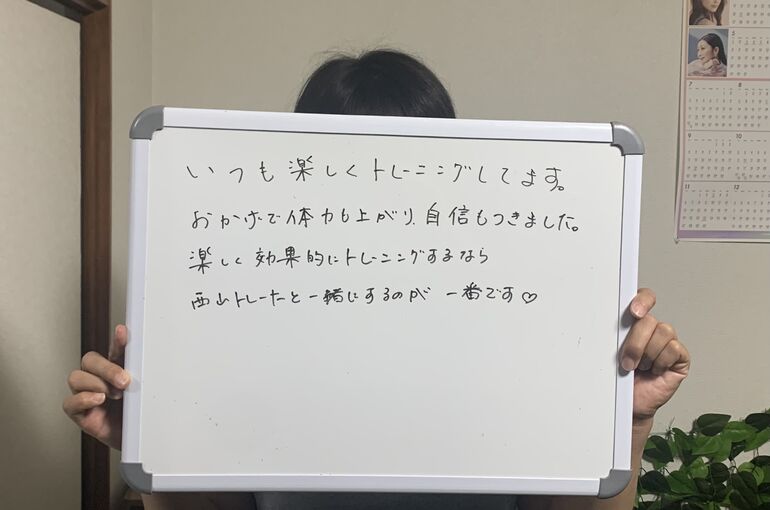 いつも楽しくトレーニングしてます。
おかげで体力も上がり、自信もつきました。
楽しく効果的にトレーニングするなら
西山トレーナーと一緒にするのが一番です♡
5
7
8
9
10
11
12